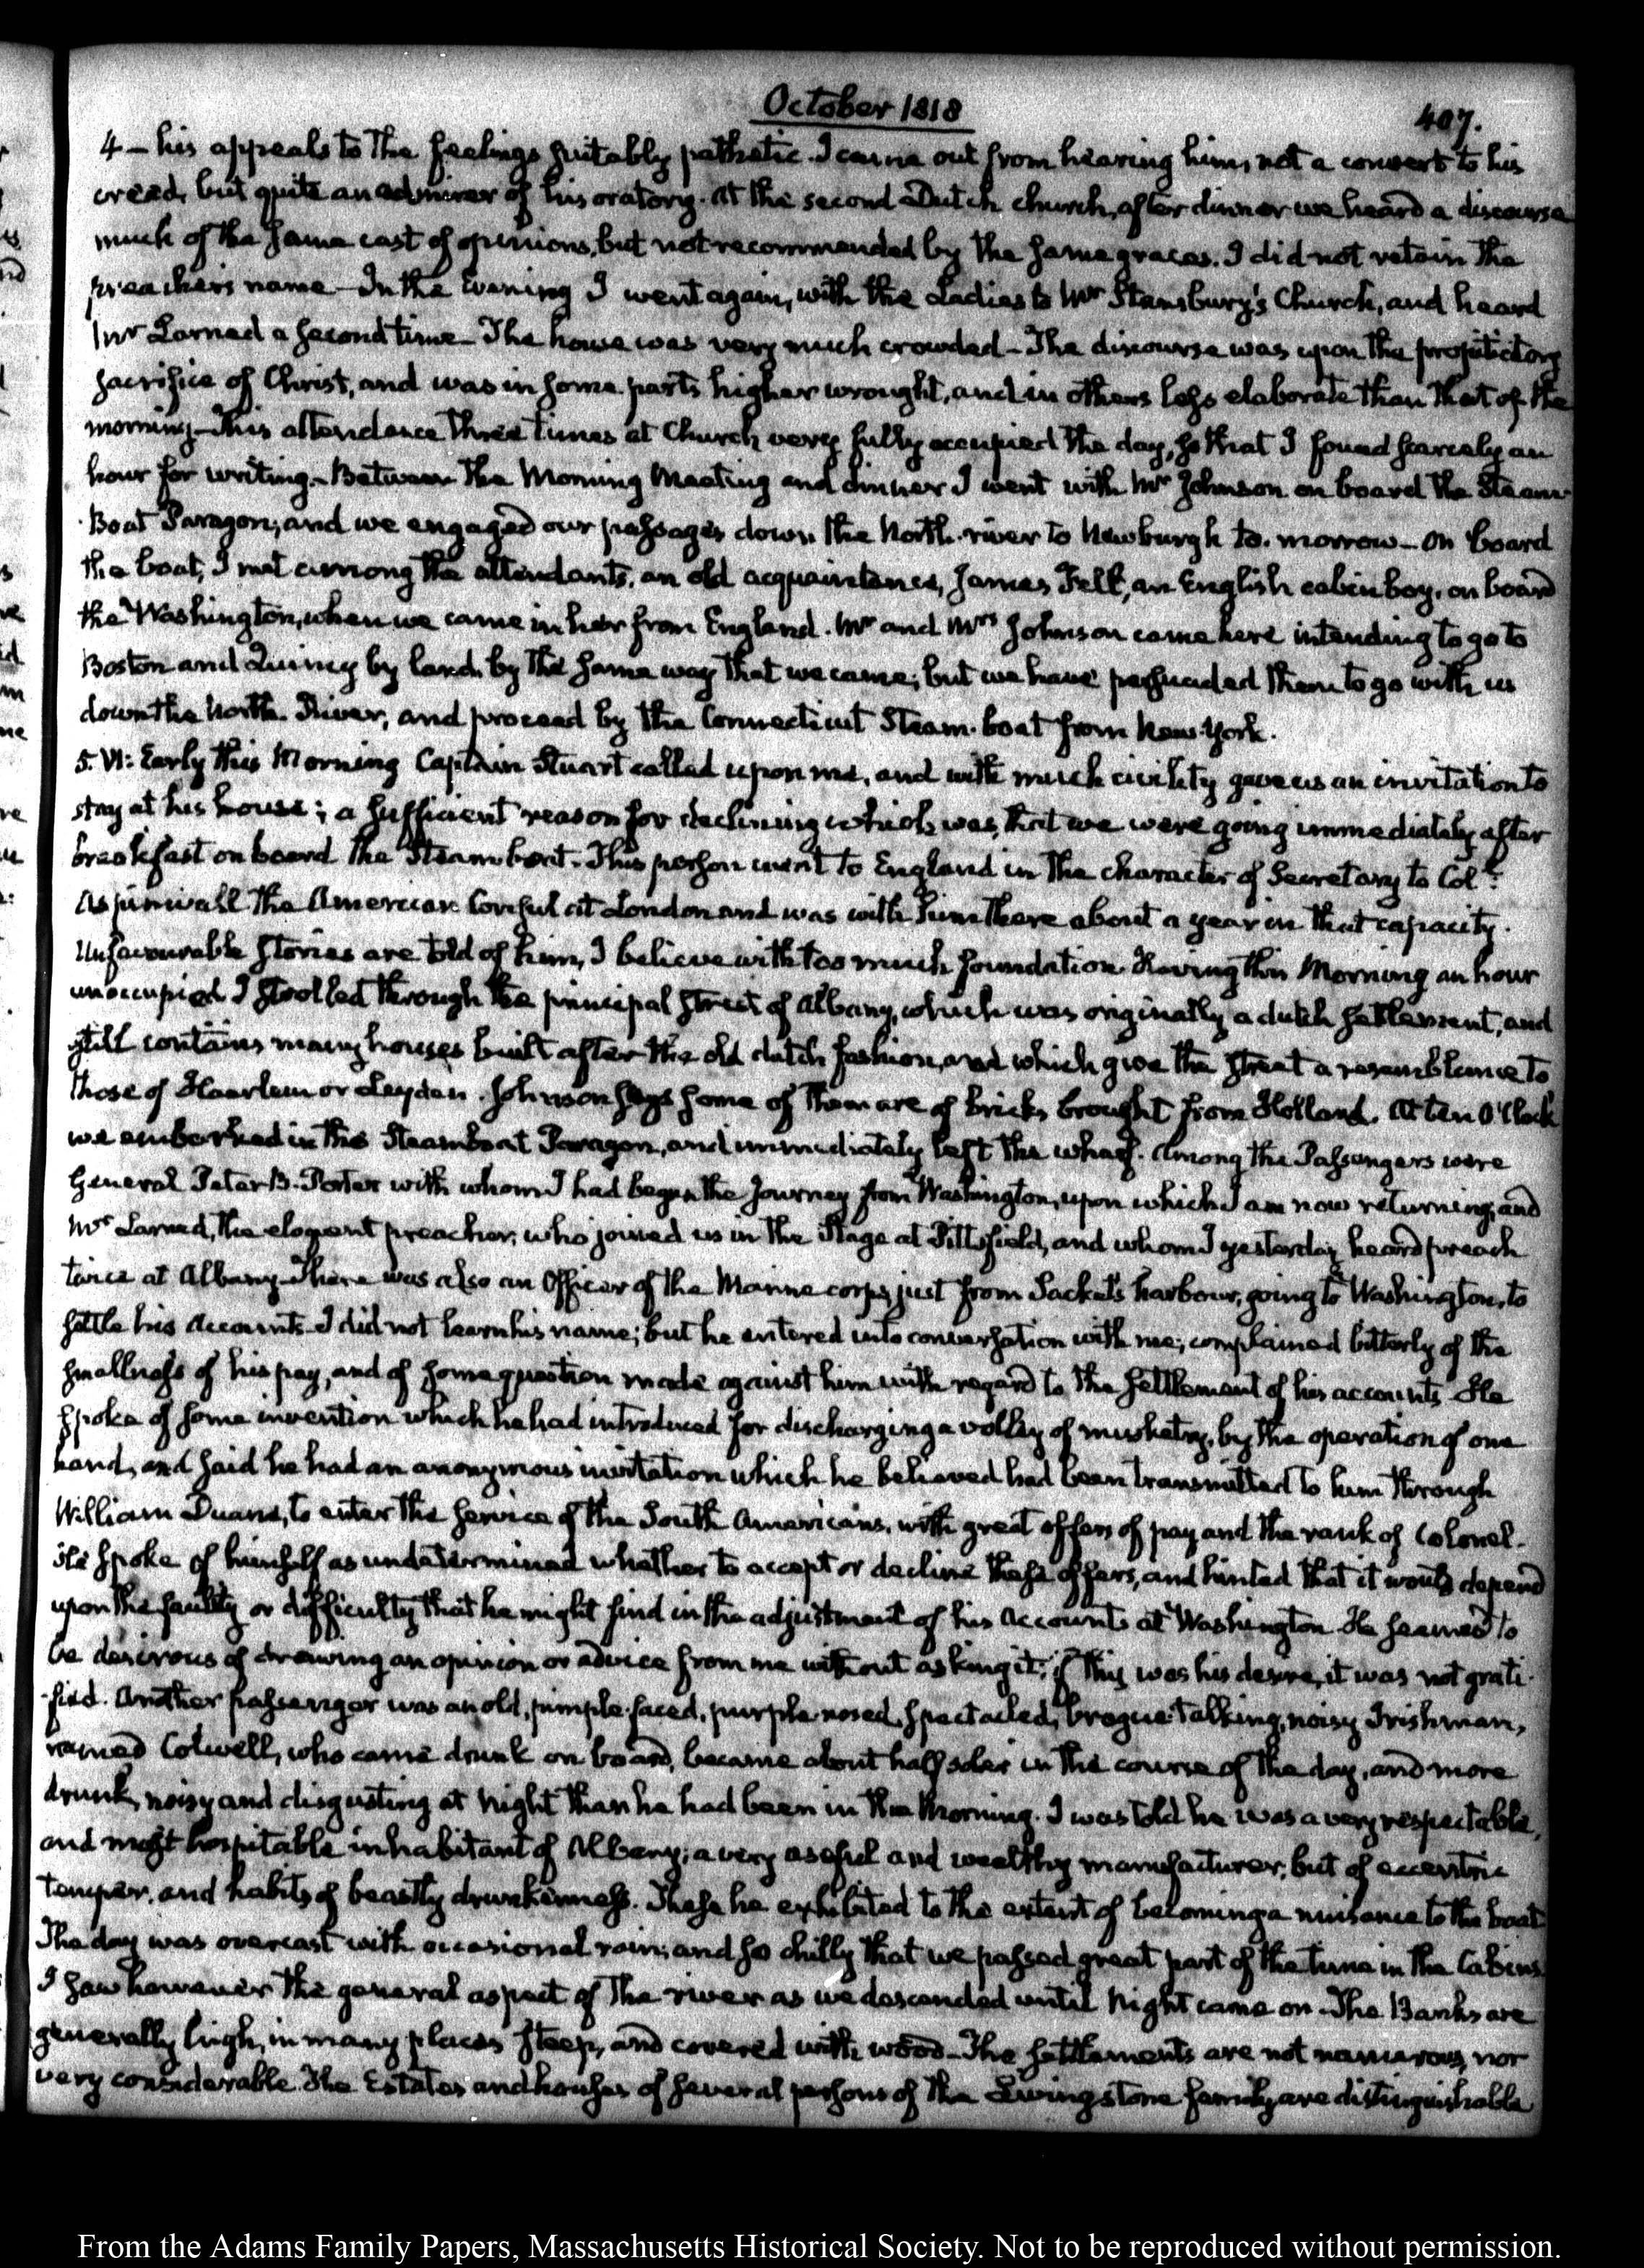 October 1818
407.
4 — his appeals to the feelings suitably pathetic. I came out from hearing him, not a convert to his
creed, but quite an admirer of his oratory. At the second Dutch church, after dinner we heard a discourse
much of the same cast of opinions, but not recommended by the same graces. I did not retain the
preacher's name — In the Evening I went again, with the Ladies to Mr Stansbury's Church, and heard
Mr Larned a second time — The house was very much crowded — The discourse was upon the propitiatory
sacrifice of Christ, and was in some parts higher wrought, and in others less elaborate than that of the
morning — This attendance three times at Church very fully occupied the day, so that I found scarcely an
hour for writing. — Between the Morning Meeting and dinner I went with Mr Johnson on board the Steam-
Boat Paragon, and we engaged our passages down the North-river to Newburgh to-morrow — On board
the boat, I met among the attendants, an old acquaintance, James Felt, an English cabin boy, on board
the Washington, when we came in her from England. Mr and Mrs Johnson came here intending to go to
Boston and Quincy by land, by the same way that we came; but we have persuaded them to go with us
down the North-River, and proceed by the Connecticut Steam-boat from New-York.
5. VI: Early this Morning Captain Stuart called upon me, and with much civility gave us an invitation to
stay at his house; a sufficient reason for declining which was, that we were going immediately after
breakfast on board the Steam boat. This person went to England in the character of Secretary to Coll:
Aspinwall the American Consul at London and was with him there about a year in that capacity.
Unfavourable stories are told of him, I believe with too much foundation. Having this Morning an hour
unoccupied I strolled through the principal street of Albany, which was originally a dutch settlement, and
still contains many houses built after the old dutch fashion, and which give the street a resemblance to
those of Haarlem or Leyden. Johnson says some of them are of bricks brought from Holland. At ten O'Clock
we embarked in the Steamboat Paragon, and immediately left the wharf. Among the Passengers were
General Peter B. Porter with whom I had begun the journey from Washington, upon which I am now returning, and
Mr Larned, the eloquent preacher, who joined us in the Stage at Pittsfield, and whom I yesterday heard preach
twice at Albany — There was also an Officer of the Marine corps, just from Sacket's harbour, going to Washington, to
settle his Accounts — I did not learn his name; but he entered into conversation with me; complained bitterly of the
smallness of his pay, and of some question made against him with regard to the settlement of his accounts — He
spoke of some invention which he had introduced for discharging a volley of musketry, by the operation of one
hand, and said he had an anonymous invitation which he believed had been transmitted to him through
William Duane, to enter the service of the South Americans, with great offers of pay and the rank of Colonel.
He spoke of himself as undetermined whether to accept or decline these offers, and hinted that it would depend
upon the facility or difficulty that he might find in the adjustment of his Accounts at Washington. He seemed to
be desirous of drawing an opinion or advice from me without asking it; if this was his desire, it was not grati-
fied. Another passenger was an old, pimple-faced, purple-nosed, spectacled, brogue-talking, noisy Irishman,
named Colwell, who came drunk on board, became about half sober in the course of the day, and more
drunk, noisy and disgusting at night than he had been in the Morning. I was told he was a very respectable,
and most hospitable inhabitant of Albany; a very useful and wealthy manufacturer; but of eccentric
temper, and habits of beastly drunkenness. These he exhibited to the extent of becoming a nuisance to the boat
The day was overcast with occasional rain; and so chilly that we passed great part of the time in the Cabins.
I saw however the general aspect of the river as we descended until Night came on — The Banks are
generally high, in many places steep, and covered with wood — The settlements are not numerous, nor
very considerable. The Estates and houses of several persons of the Livingstone family are distinguishable
From the Adams Family Papers, Massachusetts Historical Society. Not to be reproduced without permission.